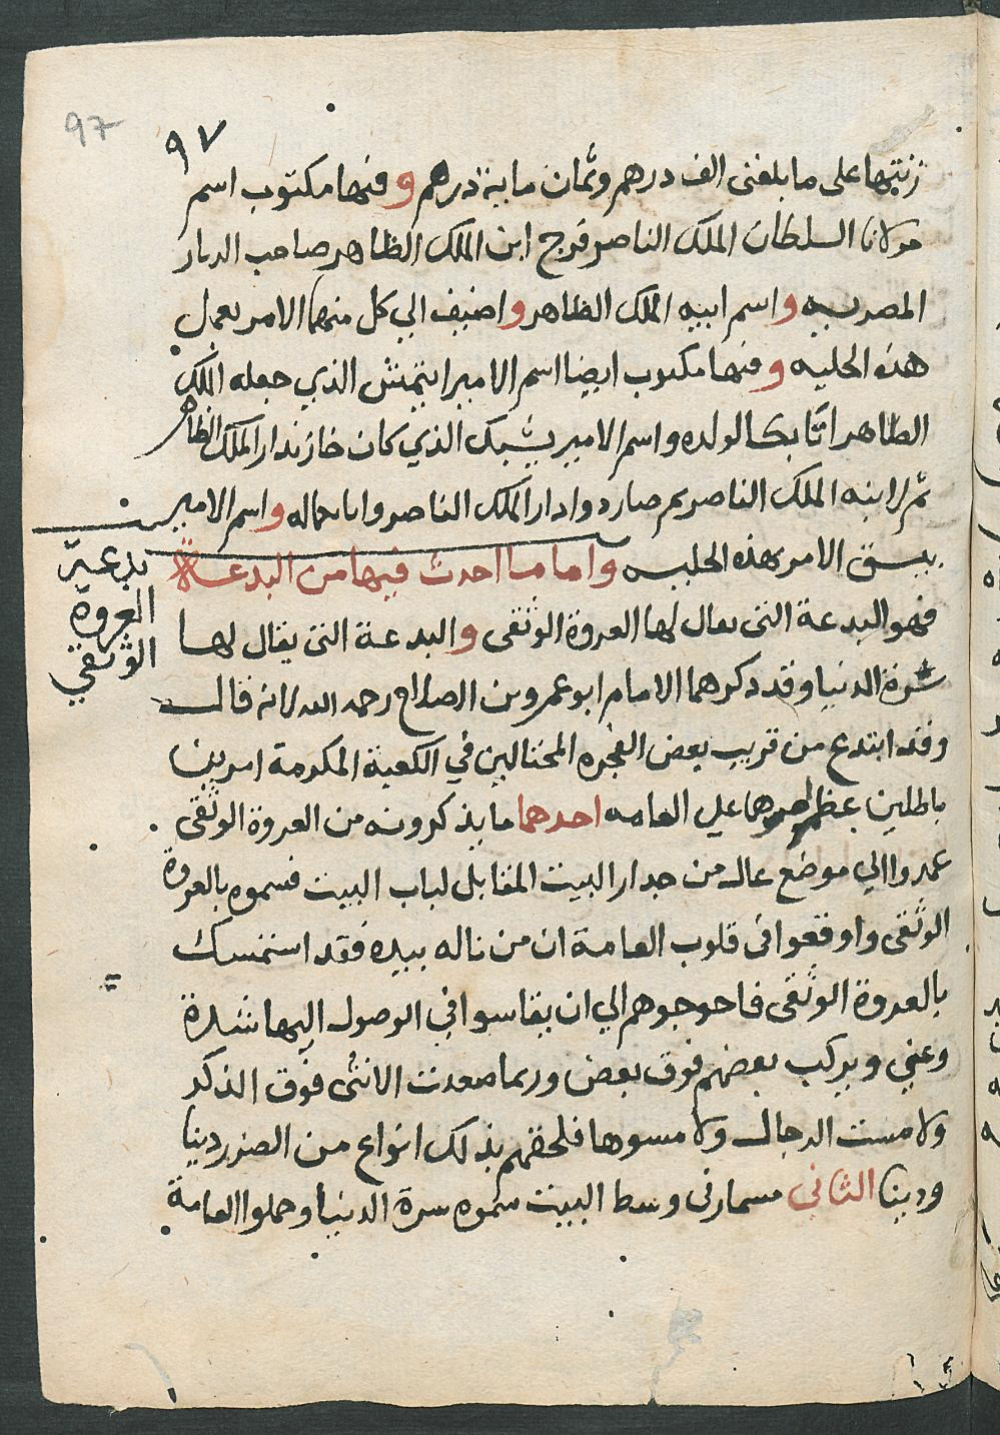 97
٩٧
زنتها على ما بلغنى الف درهم وثمان ماية درهم و فيها مكتوب اسم
مولانا السلطان الملك الناصر فرج ابن الملك الظاهر صاحب الديار
المصريه و اسم ابيه الملك الظاهر و اضيف الي كل منهما الامر بعمل
هذه الحليه و فيها مكتوب ايضا اسم الامير ايتمش الذي جعله الملك
الظاهر اتابكا لولده واسم الامير يشبك الذي كان خازندار الملك الظاهر
ثم لابنه الملك الناصر ثم صار دوادار الملك الناصر واتابكا له و اسم الامير
بيسق الامر بهذه الحليه و اما ما احدث فيها من البدعة
بدعة
العروة
الوثقي
فهو البدعة التى يقال لها العروة الوثقى و البدعة التى يقال لها
سرة الدنيا وقد ذكرهما الامام ابو عمرو بن الصلاح رحمه الله لانه قال
وقد ابتدع من قريب بعض الفجره المحتالين في الكعبة المكرمة امرين
باطلين عظم ضررهما علي العامه احدهما ما يذكرونه من العروة الوثقى
عمدوا الي موضع عال من جدار البيت المقابل لباب البيت فسموه بالعروة
الوثقى واوقعوا فى قلوب العامة ان من ناله بيده فقد استمسك
بالعروة الوثقى فاحوجوهم الي ان يقاسوا في الوصول اليها شدة
وعني ويركب بعضهم فوق بعض وربما صعدت الانثى فوق الذكر
ولامست الرجال ولامسوها فلحقهم بذلك انواع من الضرر دينا
ودينا الثانى مسمار فى وسط البيت سموه سرة الدنيا وحملوا العامة